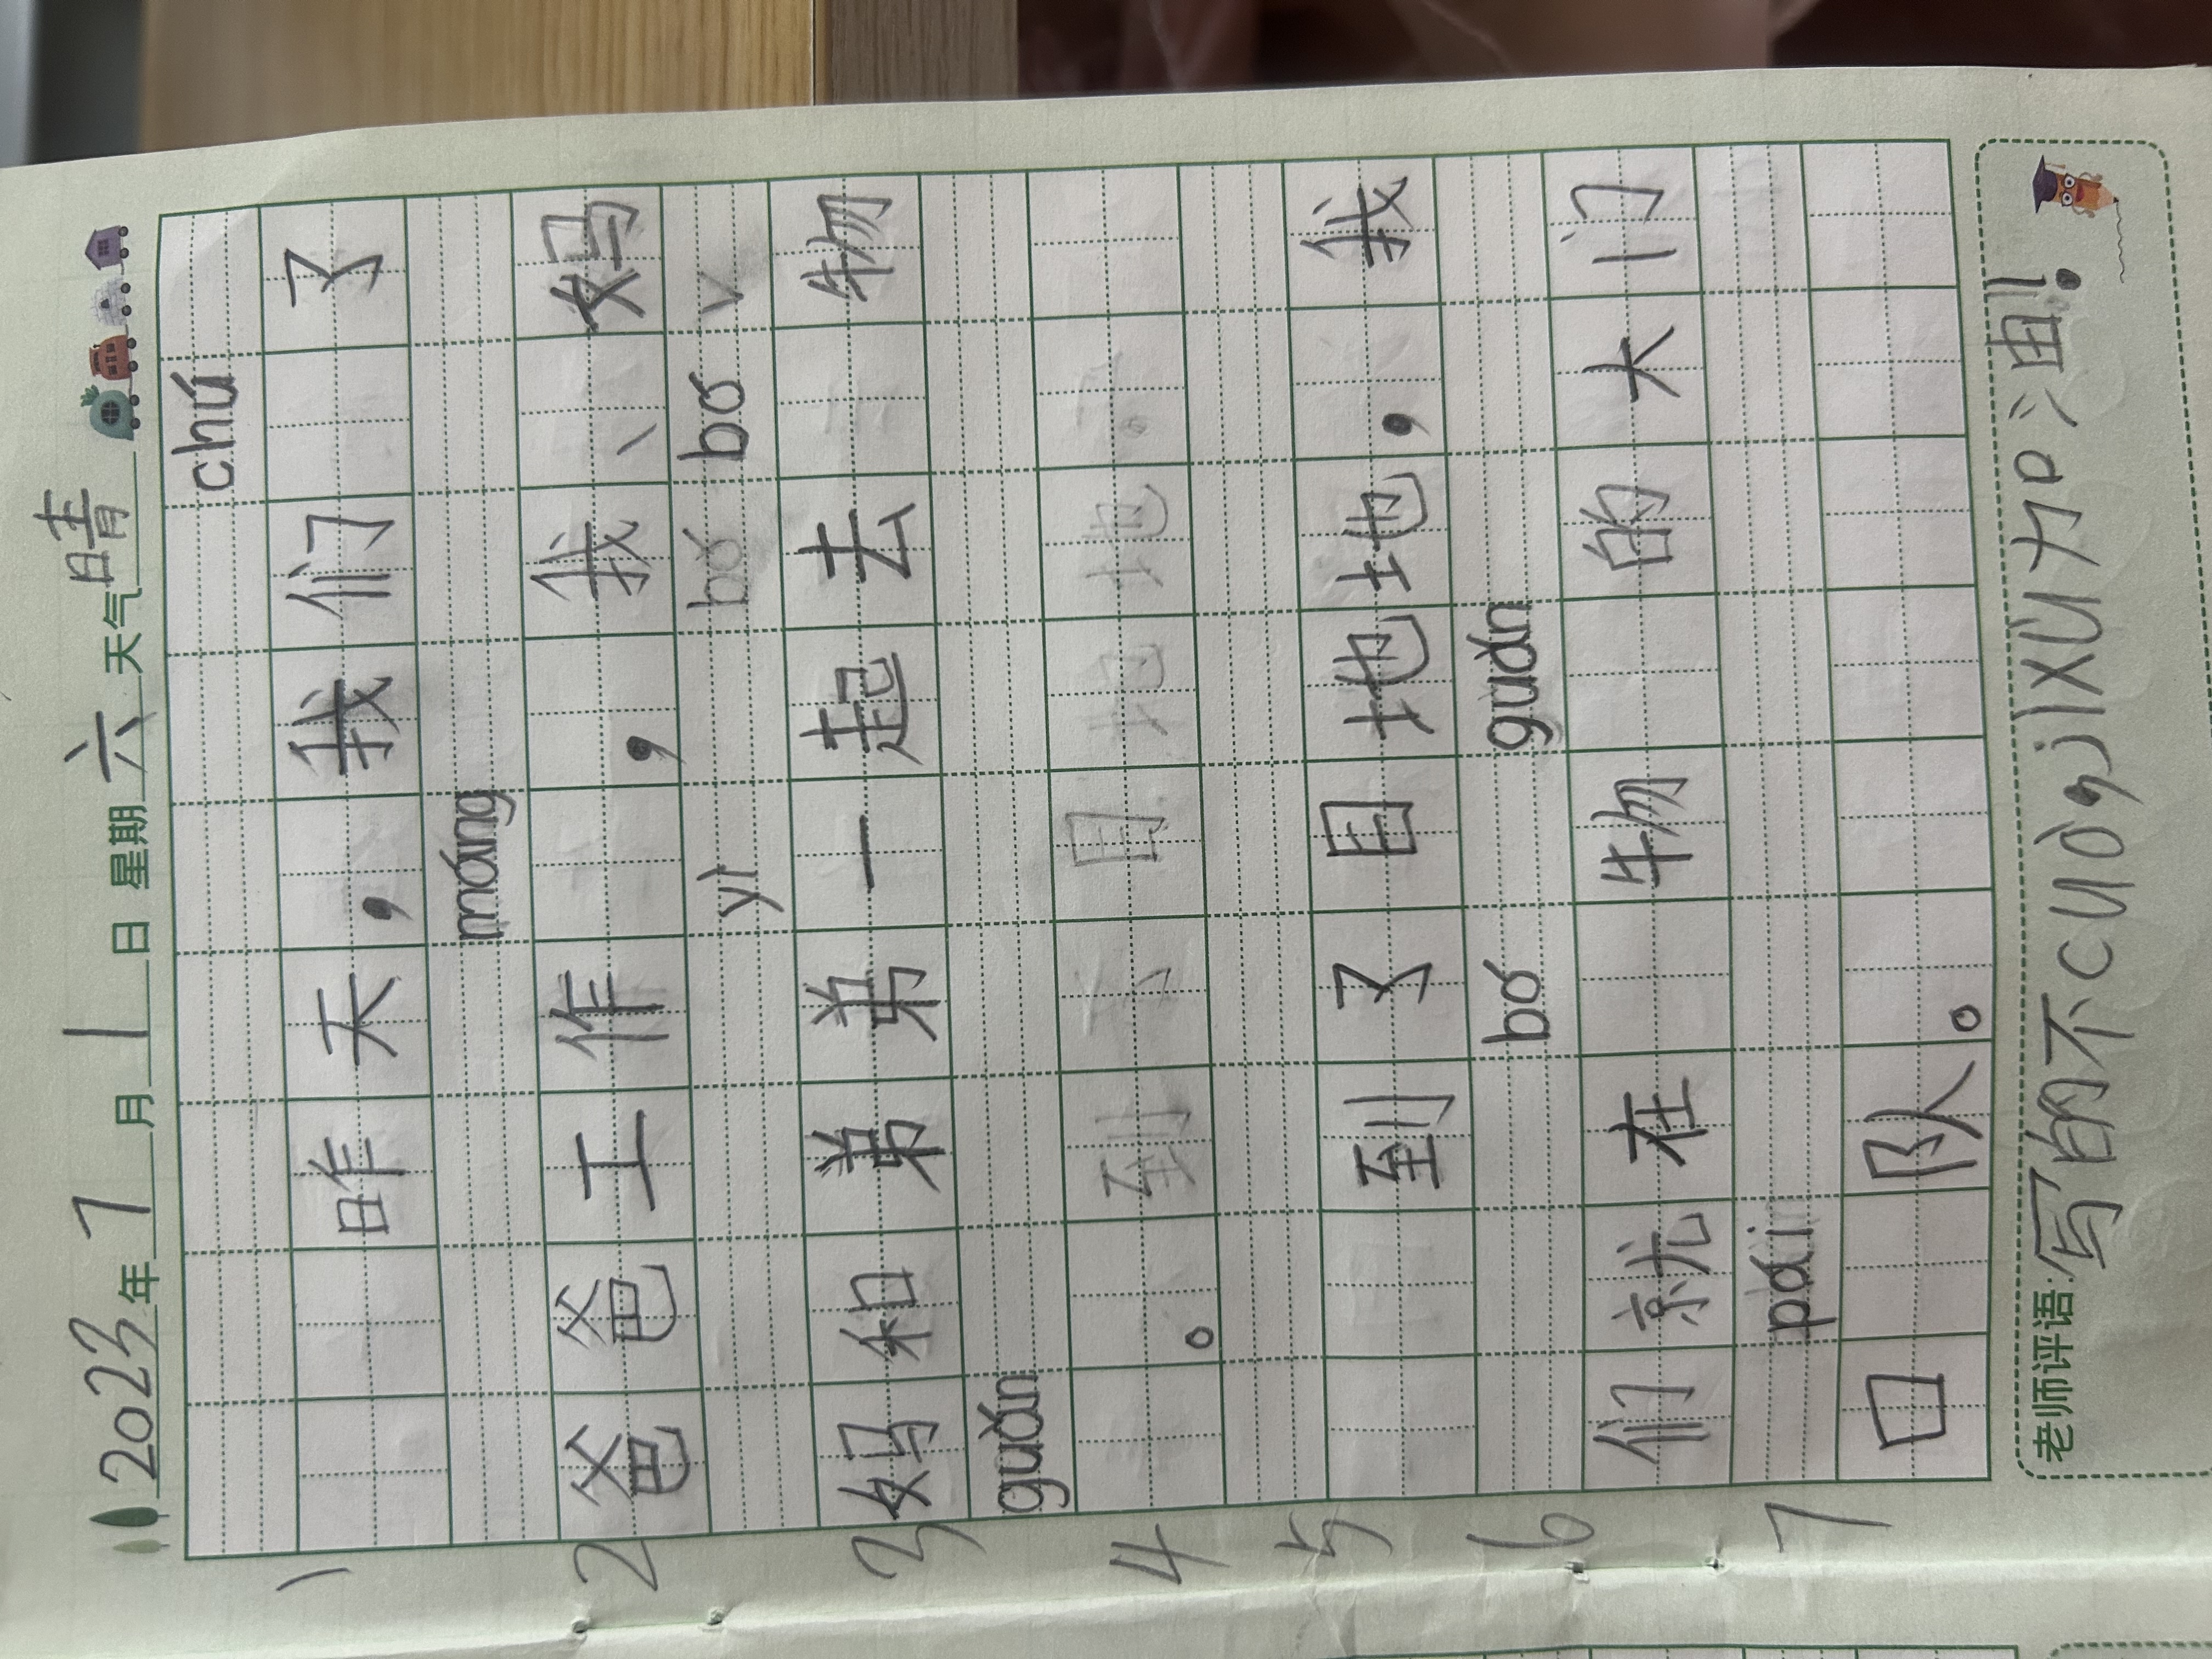 2023年7月1日 星期六 天气晴
chú
1 昨天，我们 了
máng
2 爸爸工作 ，我、妈
yì bó
3 妈和弟弟一起去 物
guán
4 。
5 到了目地地，我
bó guán
6 们就在 物 的大门
pái
7 口 队。
老师评语:写的不cuò，jìxù加油!